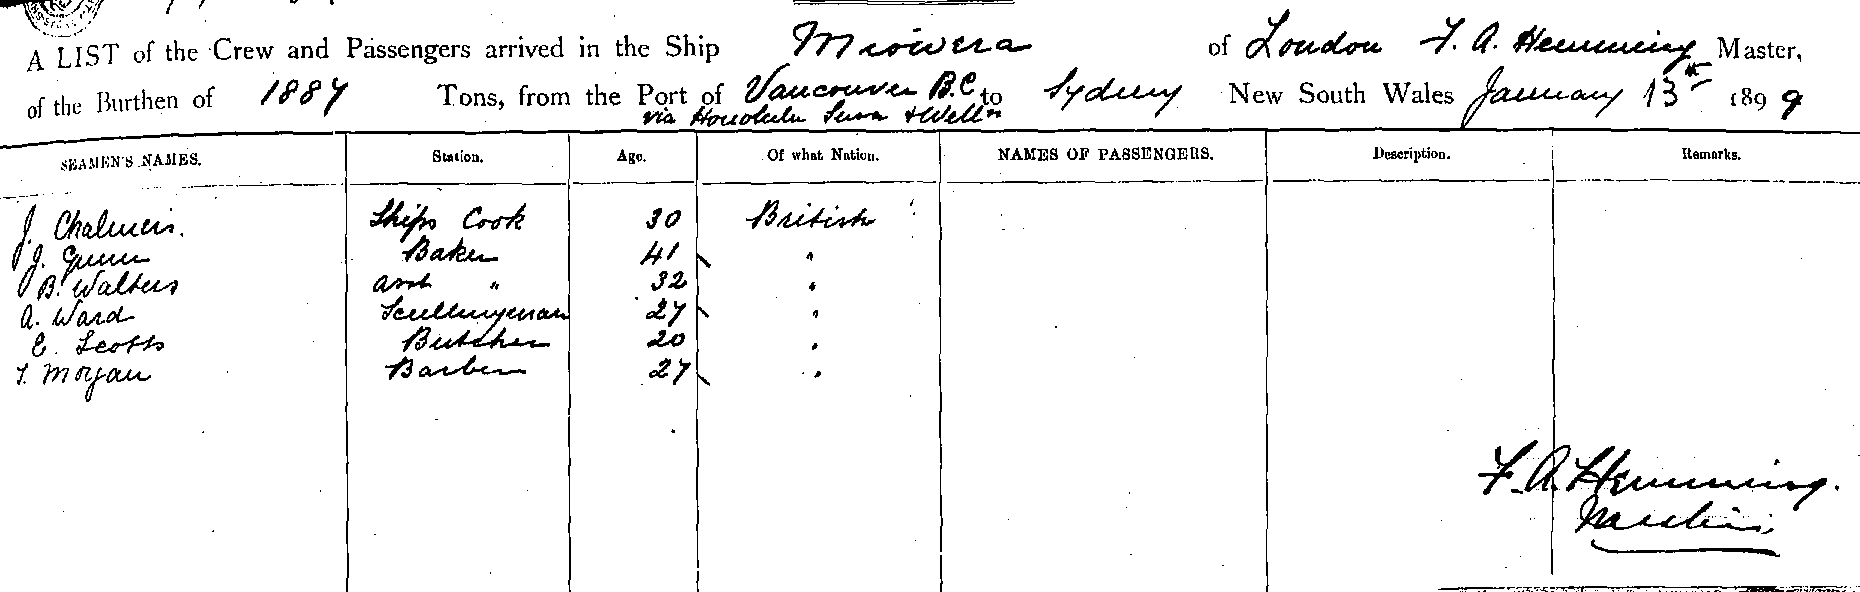 A LIST of the Crew and Passengers arrived in the Ship Miowera of London F. A. Hemming Master,
of the Burthen of 1887 Tons, from the Port of Vancouver B.C to Sydney New South Wales January 13th 1899
via Honolulu Suva & Well'n
SEAMEN'S NAMES. Station. Age. Of what Nation. NAMES OF PASSENGERS. Description. Remarks.
J. Chalmers. Ships Cook 30 British
J. Gunn Baker 41 "
B. Walters asst " 32 "
A. Ward Sculleryman 27 "
E. Scotts Butcher 20 "
T. Morgan Barber 27 "
F. A. Hemming.
Master